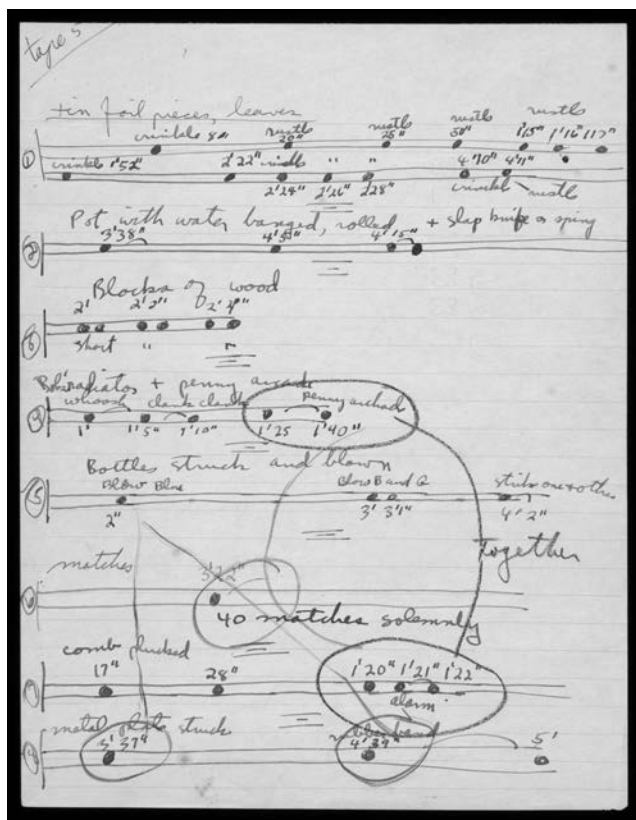 tape 5
tin foil pieces, leaves
crinkle 8" rustle 20" rustle 25" rustle 50" rustle 1'15" 1'16" 117"
①
crinkle 1'52" 2'22" " "
2'24" 2'26" 228" 4'10" 4'11"
crinkle rustle
Pot with water banged, rolled + slap knife or spring
3'38" 4'15"
②
Blocks of wood
2' 2'2" 2'4"
short " "
radiator + penny arcade
whoosh clank clank penny arcade
1' 1'5" 1'10" 1'25 1'40"
Bottles struck and blown
Blow Blow B and G strike one + other
⑤
2" 3' 3'1" 4'2"
Together
matches
40 matches solemnly
comb plucked
17" 28" 1'20" 1'21" 1'22"
alarm
metal plate struck rubber band
3'37" 4'39" 5'